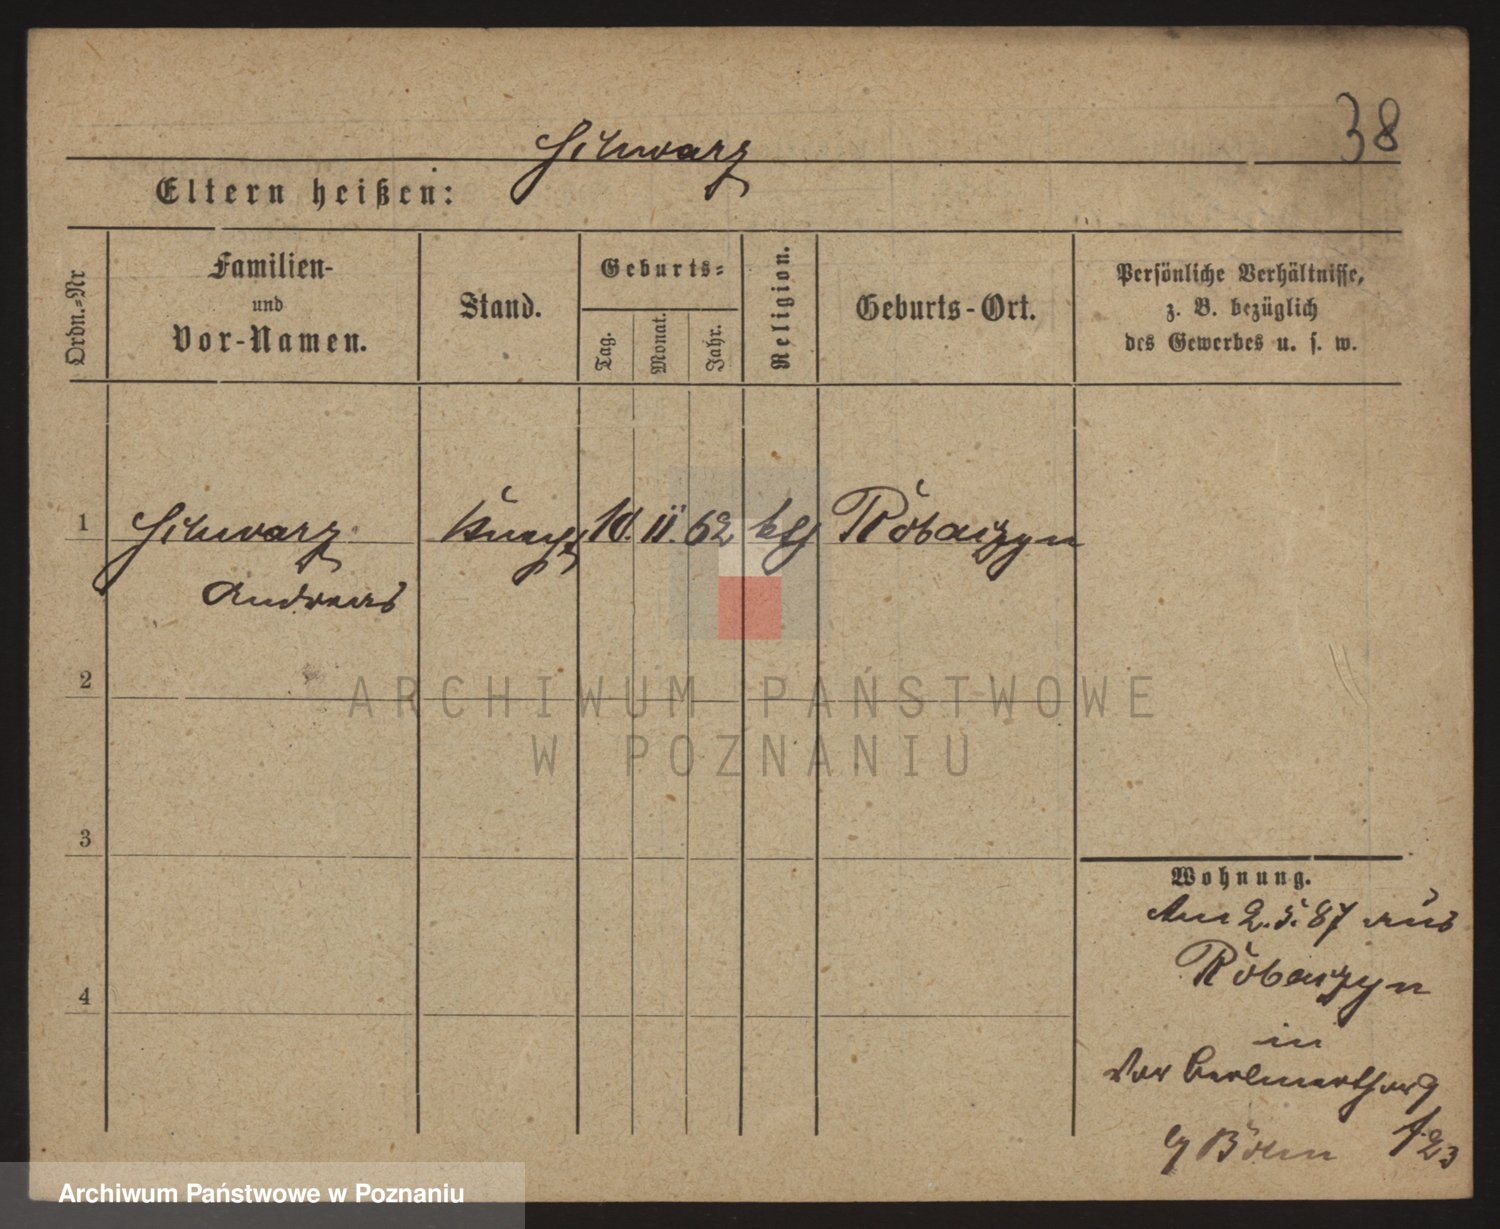 38
Schwarz
Eltern heißen:
Ordn.-Nr
Familien-
und
Vor-Namen.
Stand.
Geburts-
Tag.
Monat.
Jahr.
Religion.
Geburts-Ort.
Persönliche Verhältnisse,
z. B. bezüglich
des Gewerbes u. s. w.
1 Schwarz Knecht 10. 11. 62 kth Robaczyn
Andreas
2
ARCHIWUM PAŃSTWOWE
W POZNANIU
3
Wohnung.
Am 2.5.87 aus
Robaczyn
4
in
Vor Berlinerthor 9
Böhm
Archiwum Państwowe w Poznaniu